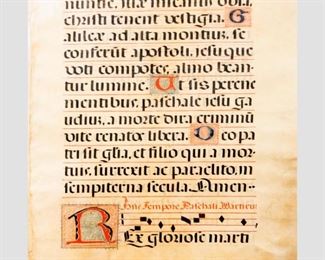 nuntie, illae micantis obvia,
christi tenent vestigia. G
alileæ ad alta montiū, se
conferūt apostoli, jesu que
voti compotes, almo bean
tur lumine. Ut sis perene
mentibus, paschale jesu ga
udiū, a morte dira criminū
vite renatos libera. Deo pa
tri sit glīa, et filio qui a mor
tuis, surrexit ac paraclito, in
sempiterna secula. Amen-
Tempore Paschali Martirum
Rex gloriose marti